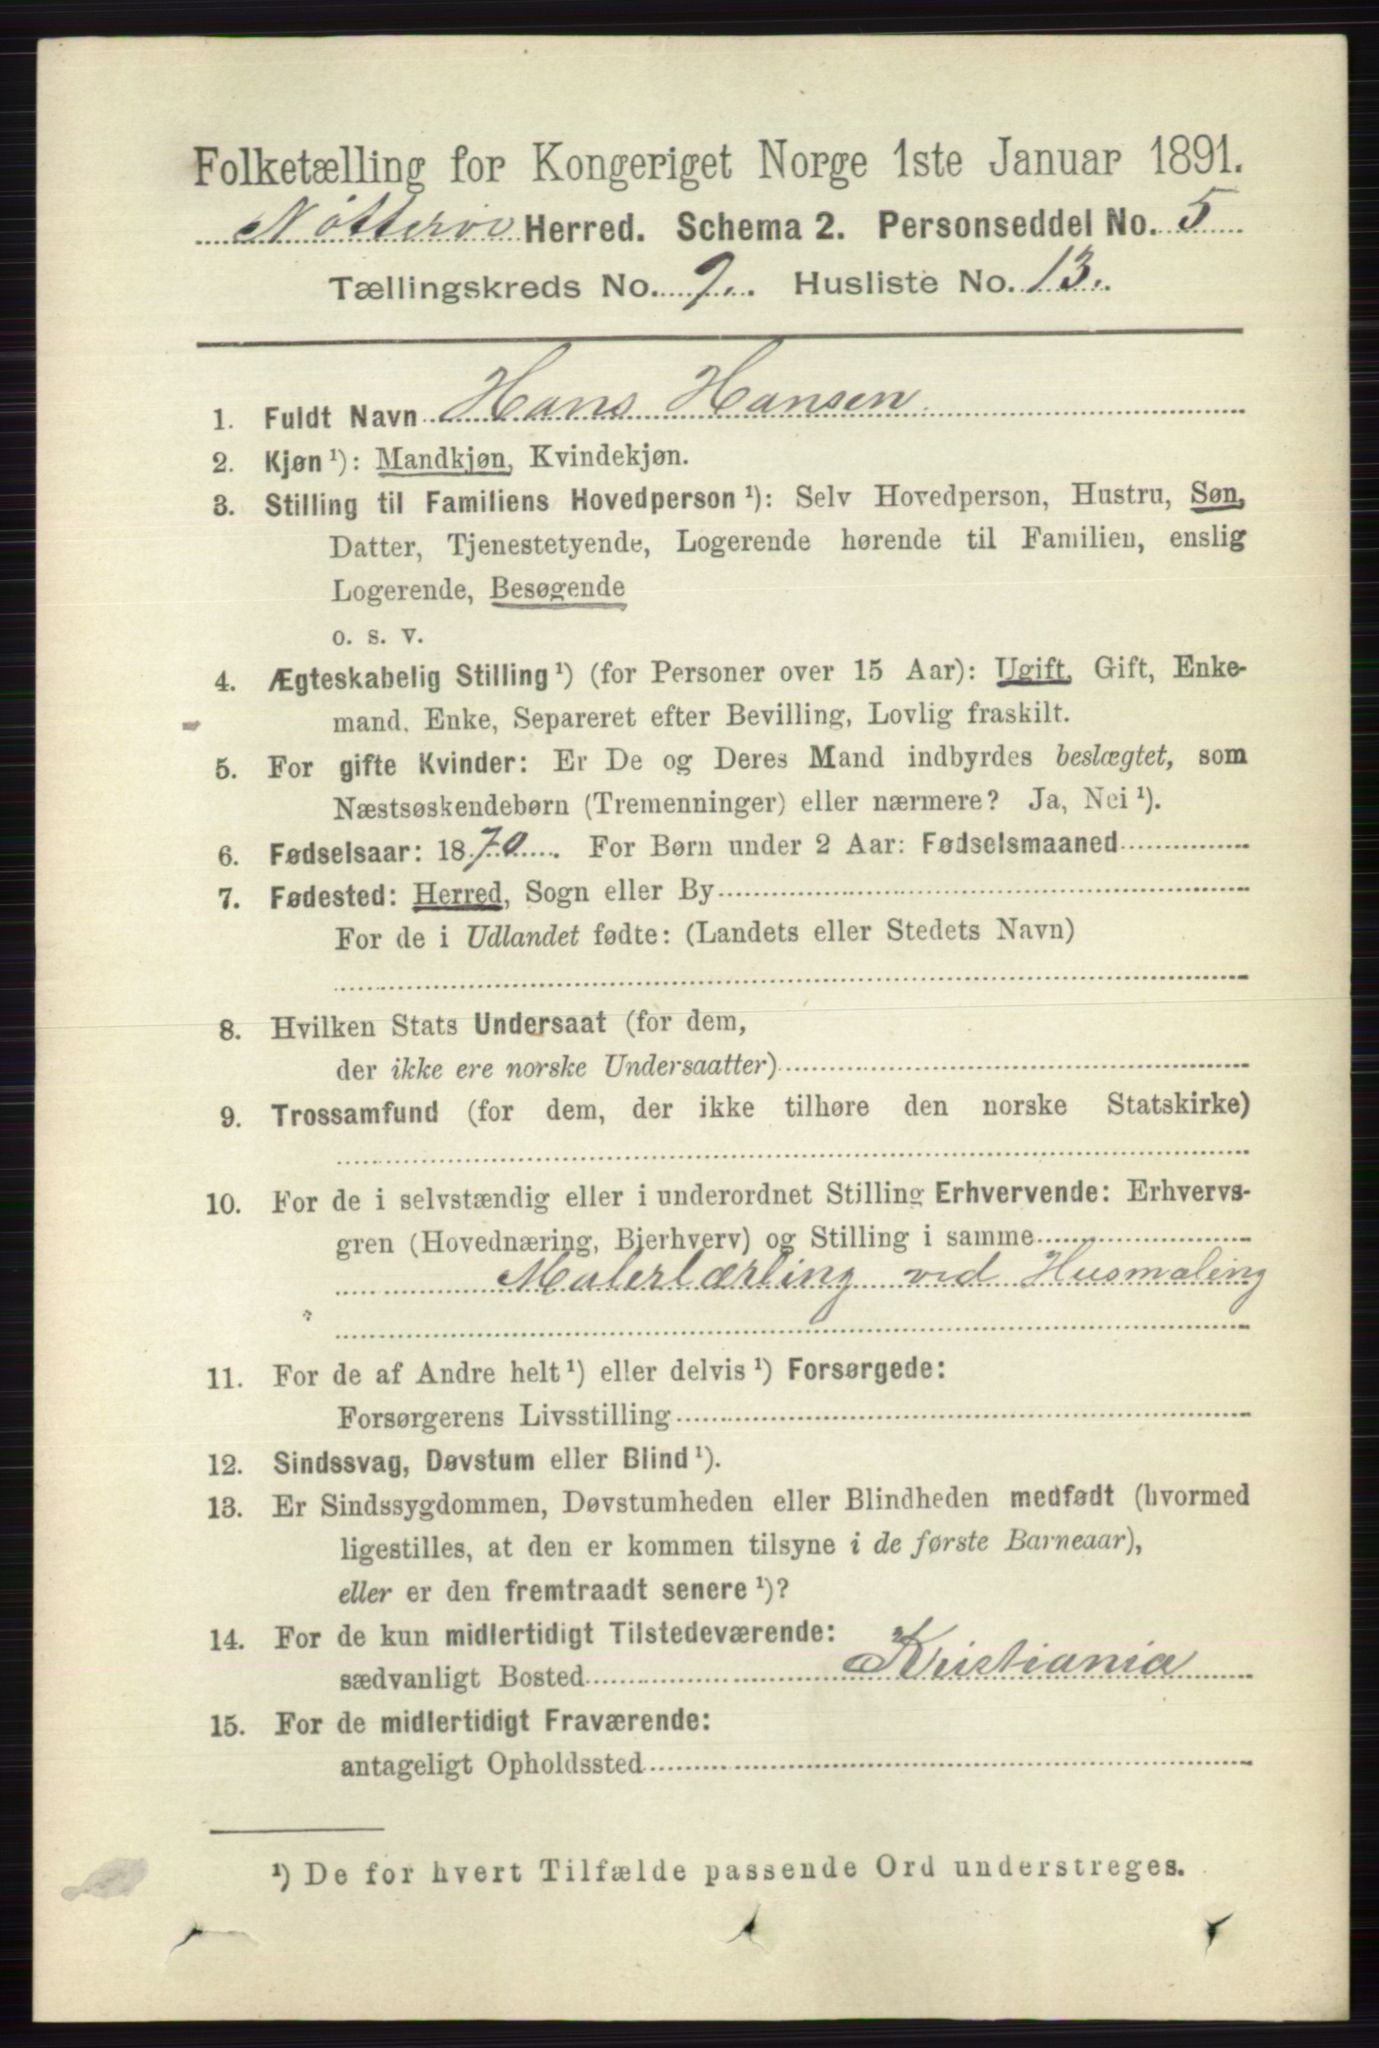 Folketælling for Kongeriget Norge 1ste Januar 1891.
Nøtterøe Herred. Schema 2. Personseddel No. 5
Tællingskreds No. 9. Husliste No. 13.
1. Fuldt Navn Hans Hansen
2. Kjøn ¹): Mandkjøn, Kvindekjøn.
3. Stilling til Familiens Hovedperson ¹): Selv Hovedperson, Hustru, Søn,
Datter, Tjenestetyende, Logerende hørende til Familien, enslig
Logerende, Besøgende
o. s. v.
4. Ægteskabelig Stilling ¹) (for Personer over 15 Aar): Ugift, Gift, Enke-
mand, Enke, Separeret efter Bevilling, Lovlig fraskilt.
5. For gifte Kvinder: Er De og Deres Mand indbyrdes beslægtet, som
Næstsøskendebørn (Tremenninger) eller nærmere? Ja, Nei ¹).
6. Fødselsaar: 1870. For Børn under 2 Aar: Fødselsmaaned
7. Fødested: Herred, Sogn eller By
For de i Udlandet fødte: (Landets eller Stedets Navn)
8. Hvilken Stats Undersaat (for dem,
der ikke ere norske Undersaatter)
9. Trossamfund (for dem, der ikke tilhøre den norske Statskirke)
10. For de i selvstændig eller i underordnet Stilling Erhvervende: Erhvervs-
gren (Hovednæring, Bierhverv) og Stilling i samme
Malerlærling ved Husmaling
11. For de af Andre helt ¹) eller delvis ¹) Forsørgede:
Forsørgerens Livsstilling
12. Sindssvag, Døvstum eller Blind ¹).
13. Er Sindssygdommen, Døvstumheden eller Blindheden medfødt (hvormed
ligestilles, at den er kommen tilsyne i de første Barneaar),
eller er den fremtraadt senere ¹)?
14. For de kun midlertidigt Tilstedeværende:
sædvanligt Bosted Kristiania
15. For de midlertidigt Fraværende:
antageligt Opholdssted
¹) De for hvert Tilfælde passende Ord understreges.